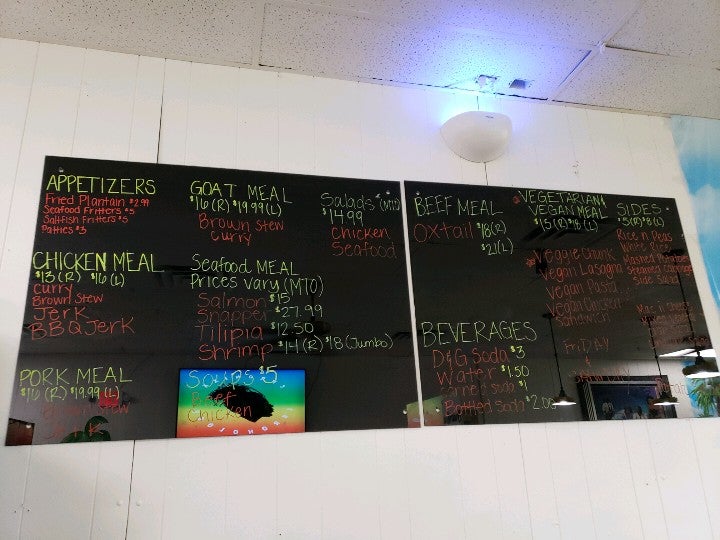 APPETIZERS
Fried Plantain $2.99
Seafood Fritters $5
Saltfish Fritters $5
Patties $3
CHICKEN MEAL
$13(R) $16(L)
Curry
Brown Stew
Jerk
BBQ Jerk
PORK MEAL
$16(R) $19.99(L)
Stew
Jerk
GOAT MEAL
$16(R) $19.99(L)
Brown Stew
Curry
Seafood MEAL
Prices vary (MTO)
Salmon $15
Snapper $27.99
Tilipia $12.50
Shrimp $14(R) $18(Jumbo)
Soups $5
Beef
Chicken
Salads (MTO)
$14.99
Chicken
Seafood
BEEF MEAL
Oxtail $18(R)
$21(L)
BEVERAGES
D&G Soda $3
Water $1.50
Soda $1
Bottled Soda $2.00
VEGETARIAN &
VEGAN MEAL
$15(R) $18(L)
Veggie Chunk
Vegan Lasagna
Vegan Pasta
Vegan Chicken
Sandwich
FRIDAY
&
SIDES
$5(R) $8(L)
Rice n Peas
White Rice
Mashed Potatoes
Steamed Cabbage
Side Salad
Mac n Cheese